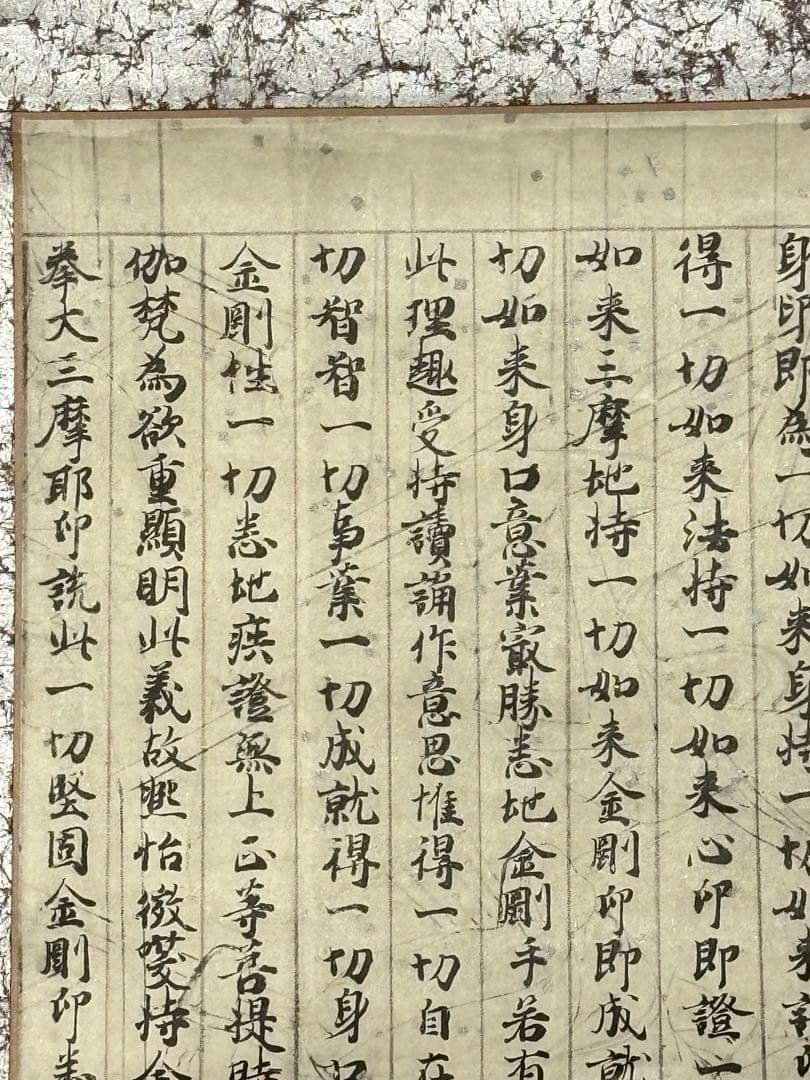 身印即為一切如来身持一切如来
得一切如来法持一切如来心印即證一
如来三摩地持一切如来金剛印即成就
切如来身口意業㝡勝悉地金剛手若有
此理趣受持讀誦作意思惟得一切自在
切智智一切事業一切成就得一切身口
金剛性一切悉地疾證無上正等菩提時
伽梵為欲重顯明此義故熙怡微笑持金
拳大三摩耶印說此一切堅固金剛印悉